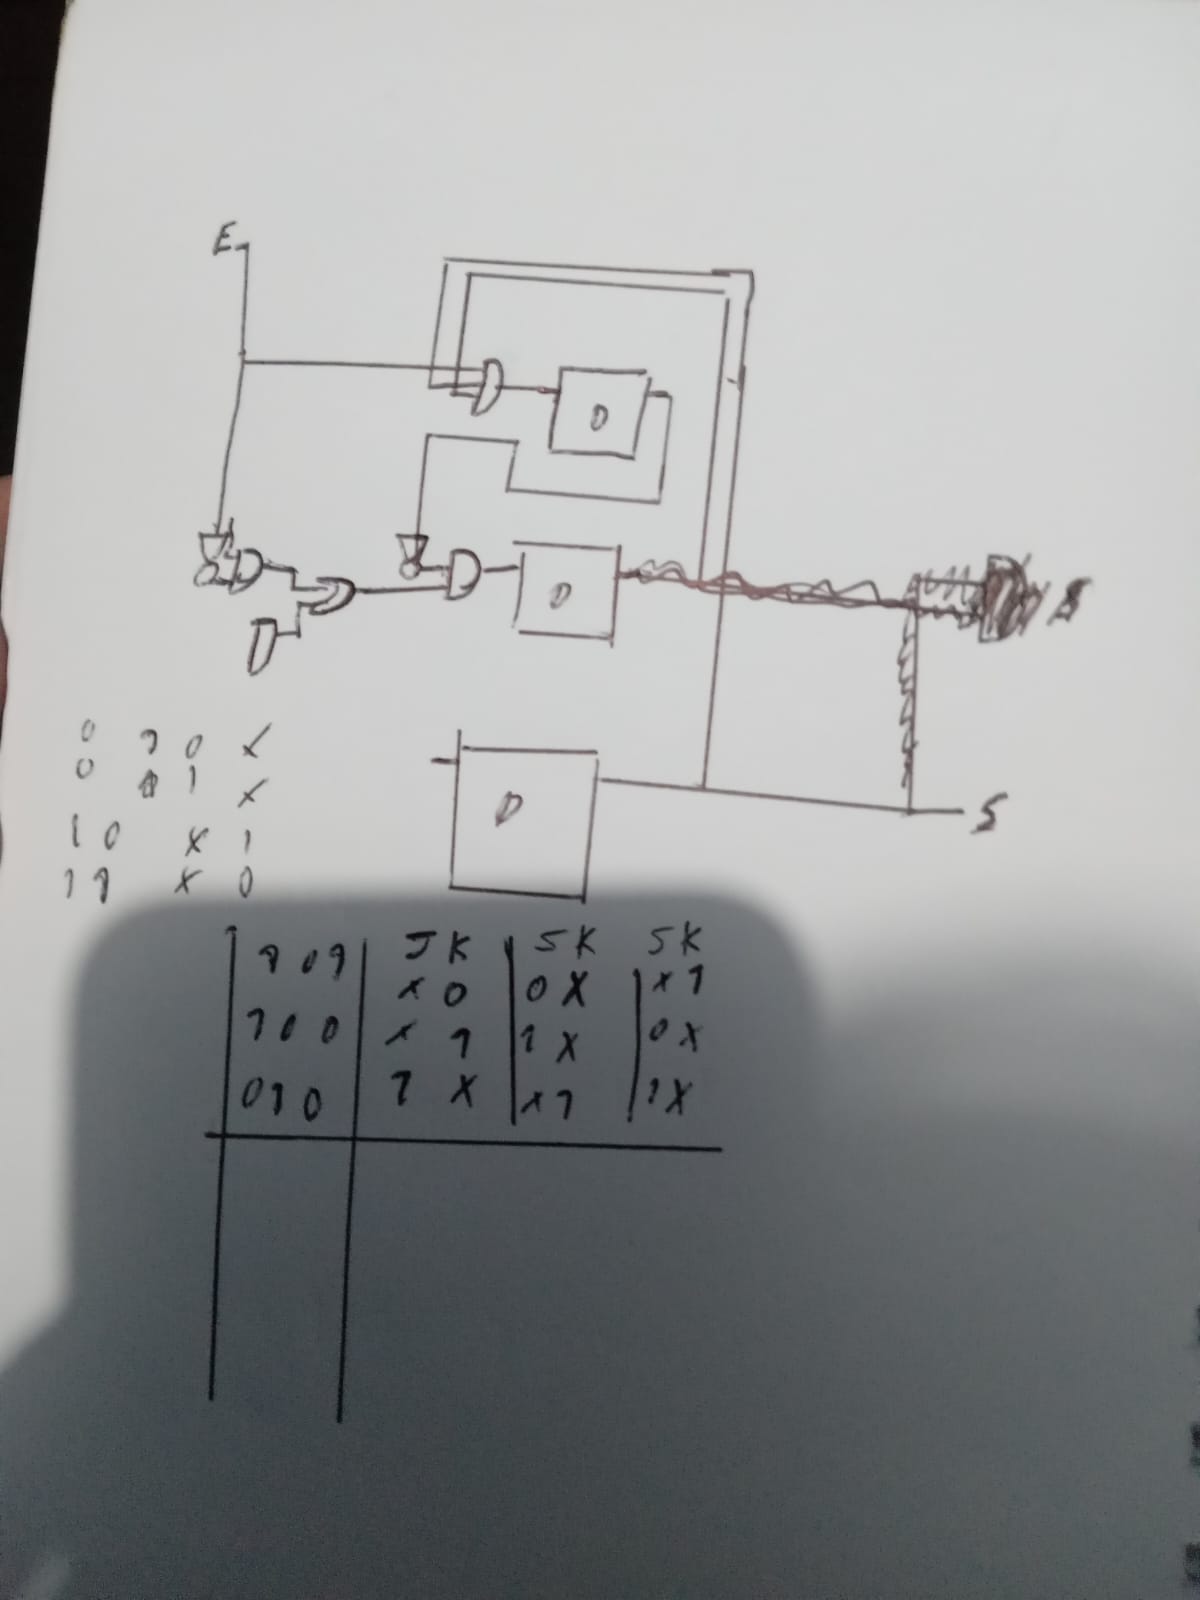 E
D
D
0 1 0 X
0 1 X
D
S
1 0 X 1
1 1 X 0
1 0 1 J K J K J K
X 0 0 X X 1
1 0 0 X 1 1 X 0 X
0 1 0 1 X X 1 1 X